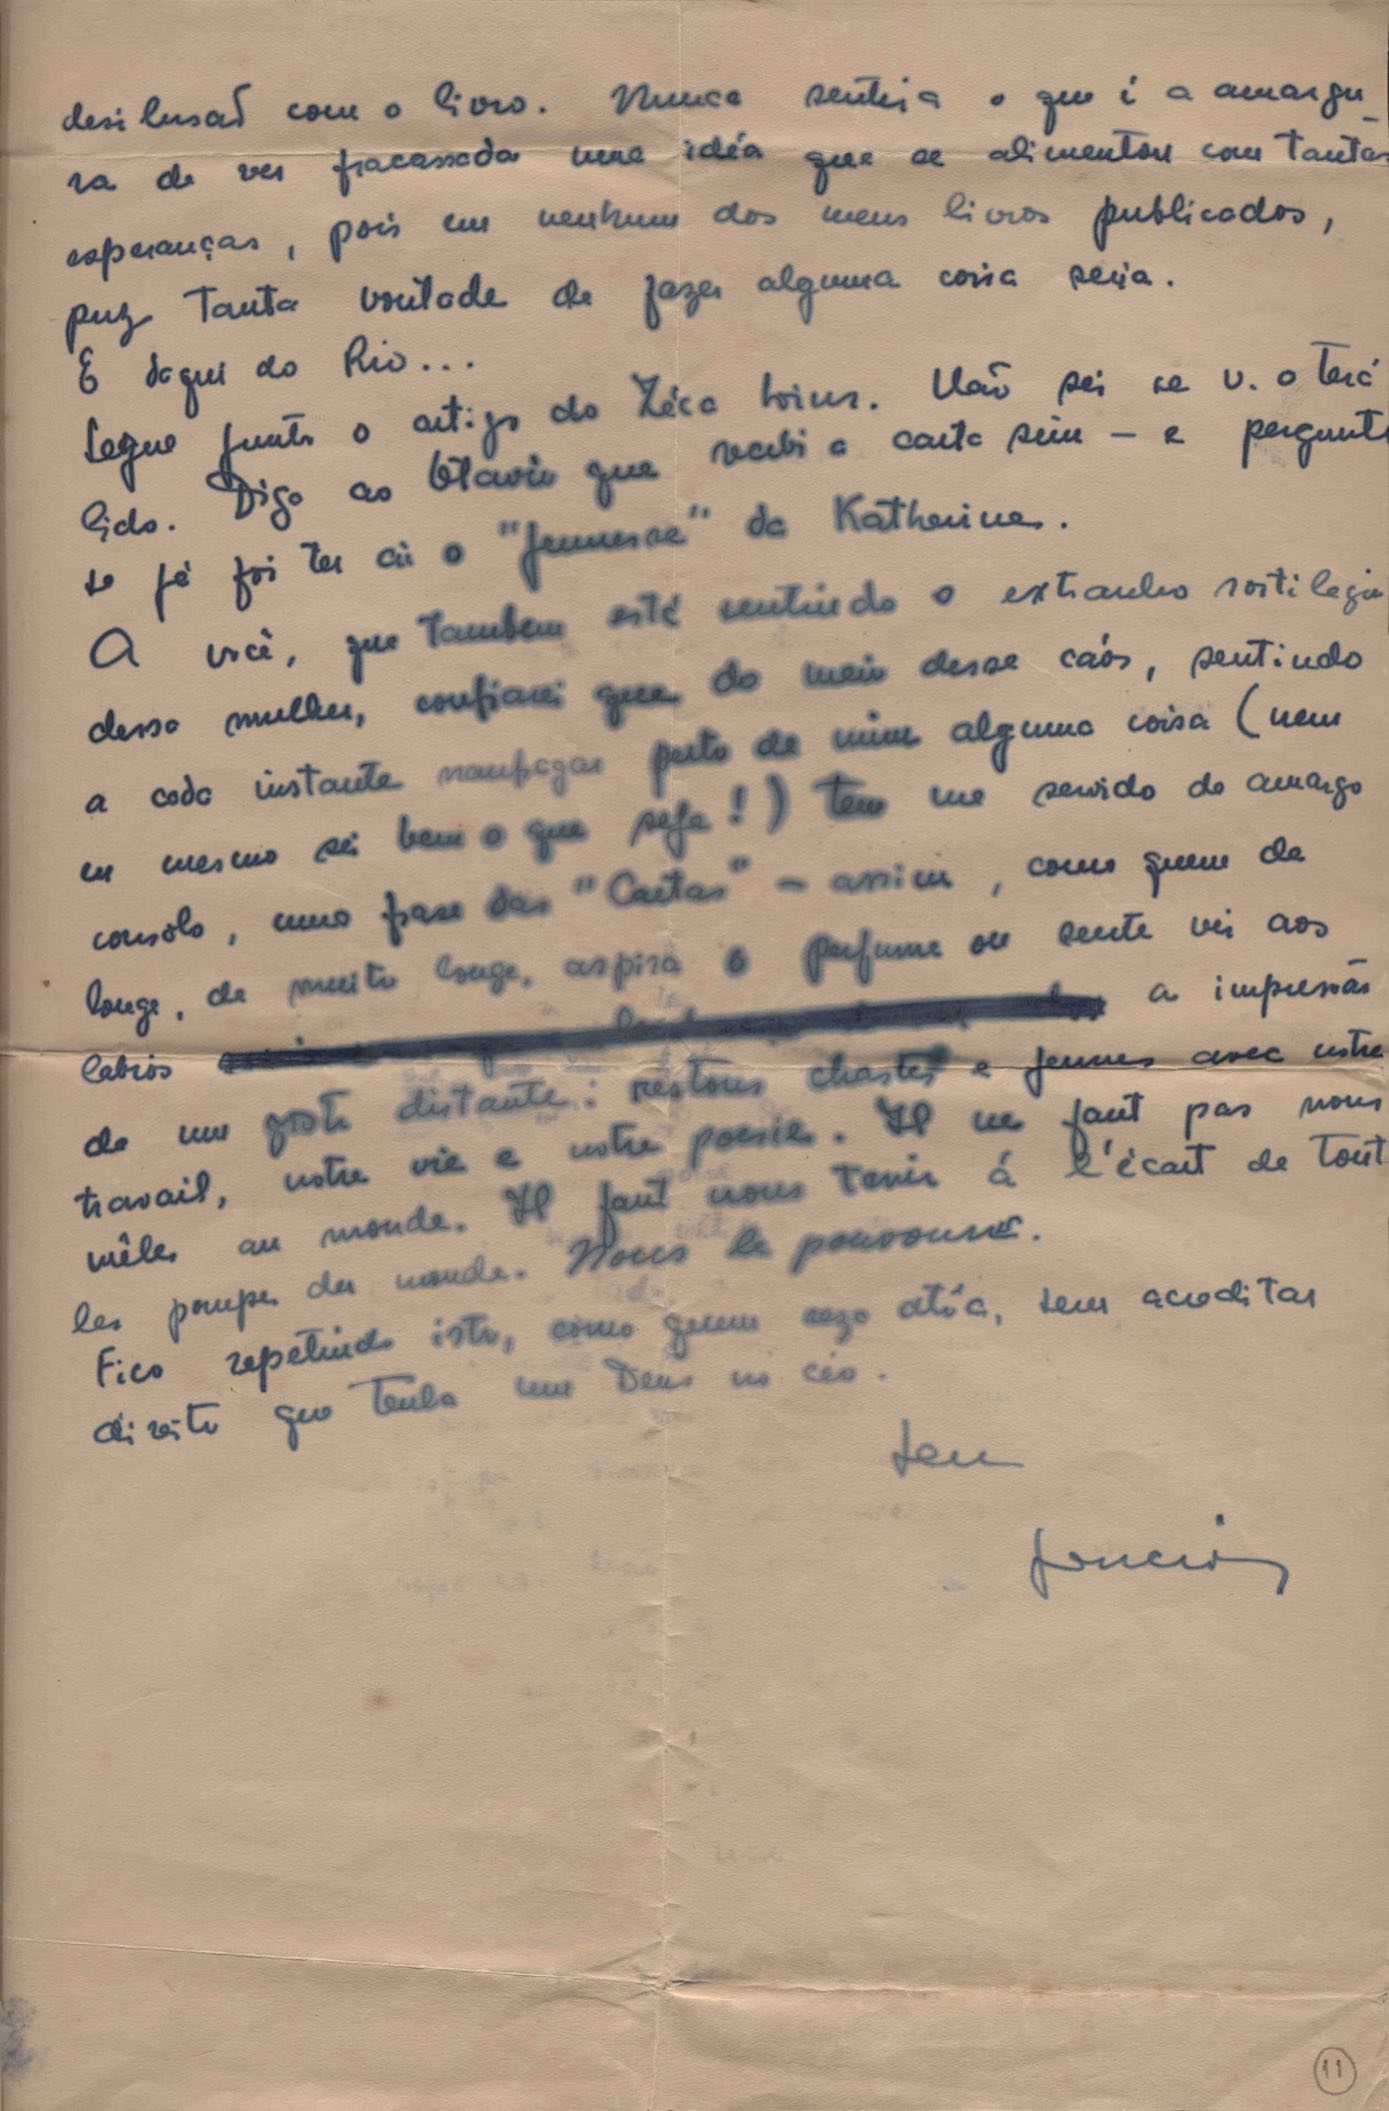 desilusaõ com o livro. Nunca sentira o que é a amargu-
ra de ver fracassada uma idéa que se alimentou com tantas
esperanças, pois em nenhum dos meus livros publicados,
puz tanta vontade de fazer alguma coisa seria.
E daqui do Rio...
Segue junto o artigo do Zéca Lins. Não sei se v. o terá
lido. Diga ao Otavio que recebi a carta sim - e pergunte
se já foi ter ai o "Jeunesse" da Katherine.
A você, que tambem está sentindo o extranho sortilegio
dessa mulher, confiarei que do meio desse cáos, sentindo
a cada instante naufragar perto de mim alguma coisa (nem
eu mesmo sei bem o que seja!) tem me servido de amargo
consolo, uma frase das "Cartas" - assim, como quem de
longe, de muito longe, aspira o perfume ou sente vir aos
labios a impressão
de um gosto distante: restons chastes e jeunes avec notre
travail, notre vie e notre poesie. Il ne faut pas nous
mêler au monde. Il faut nous tenir á l'écart de tout
les pompes du monde. Nous le pouvons.
Fico repetindo isto, como quem reza atôa, sem acreditar
direito que tenha um Deus no céo.
Seu
11